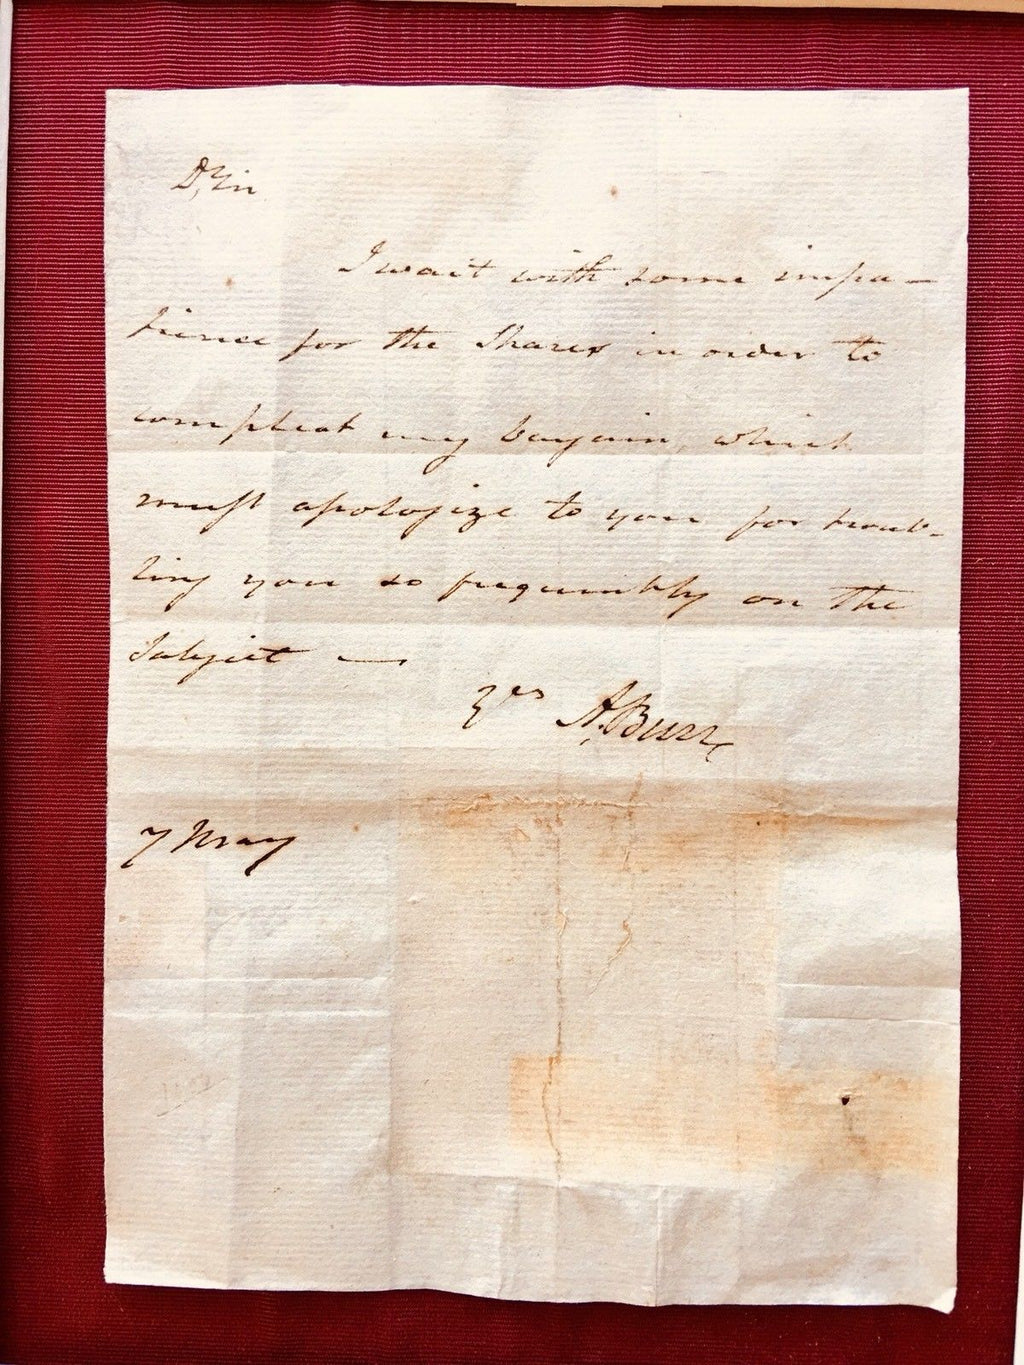 D, Sir
I wait with some impa-
tience for the Shares in order to
compleat my bargain, which
must apologize to you for troub-
ling you so frequently on the
Subject —
Yrs A. Burr
7 May